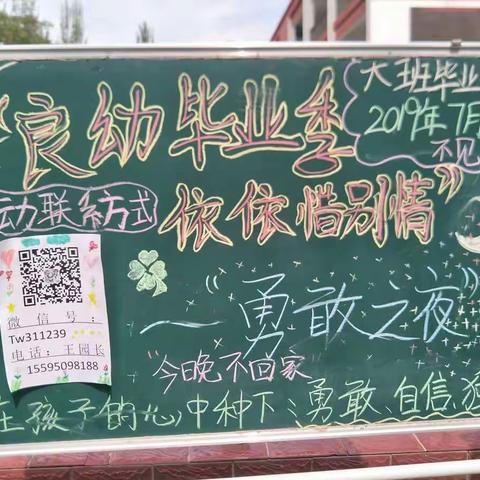 "良幼毕业季
依依惜别情"
大班毕业
2019年7月
不见
动联系方式
微信号：
Tw311239
电话：王园长
15595098188
一"勇敢之夜"
"今晚不回家
在孩子的心中种下：勇敢、自信、独